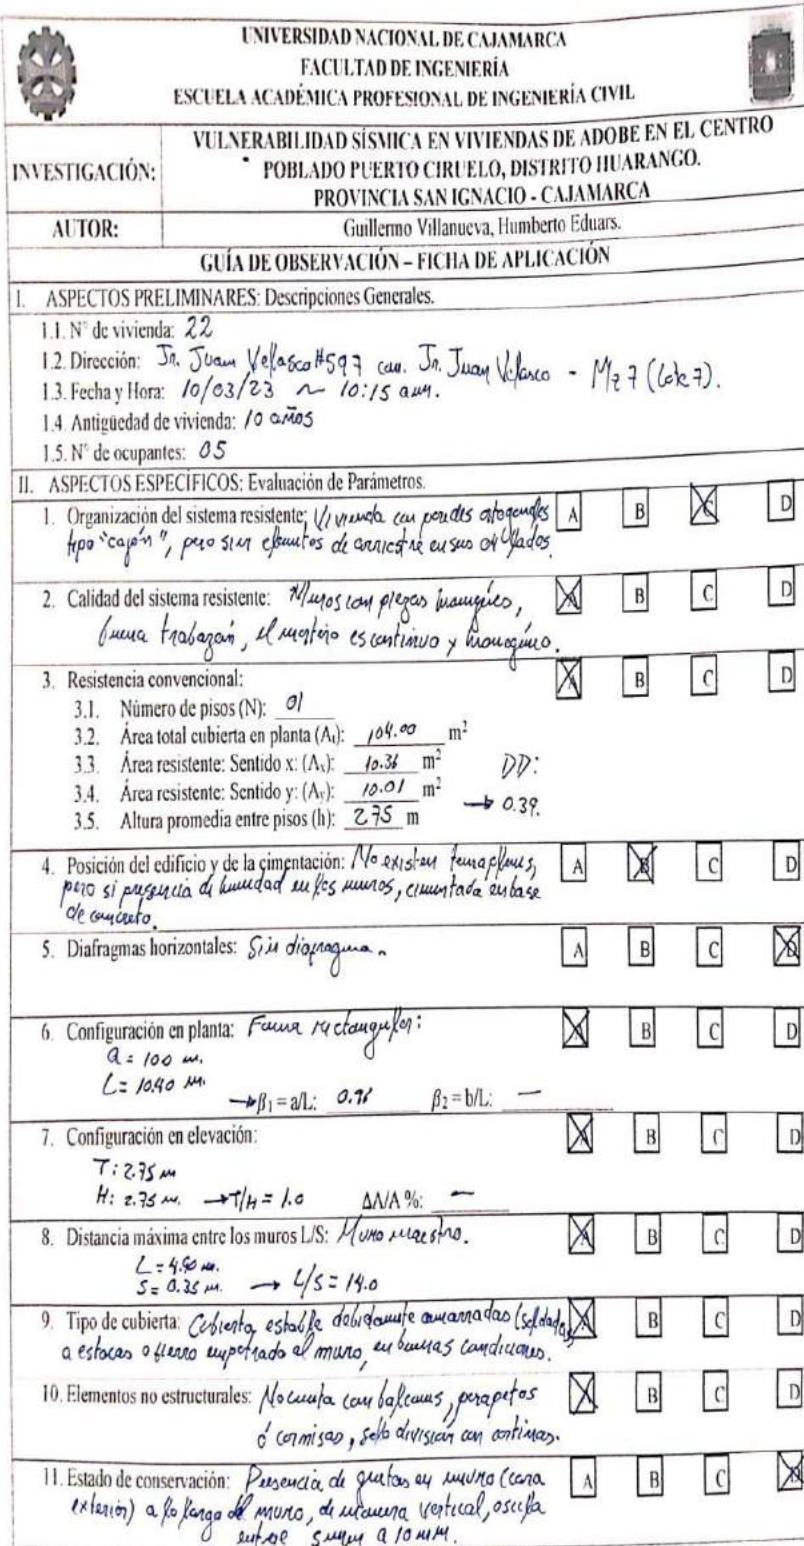 UNIVERSIDAD NACIONAL DE CAJAMARCA
FACULTAD DE INGENIERÍA
ESCUELA ACADÉMICA PROFESIONAL DE INGENIERÍA CIVIL
INVESTIGACIÓN:
VULNERABILIDAD SÍSMICA EN VIVIENDAS DE ADOBE EN EL CENTRO
POBLADO PUERTO CIRUELO, DISTRITO HUARANGO.
PROVINCIA SAN IGNACIO - CAJAMARCA
AUTOR: Guillermo Villanueva, Humberto Eduars.
GUÍA DE OBSERVACIÓN – FICHA DE APLICACIÓN
I. ASPECTOS PRELIMINARES: Descripciones Generales.
1.1. N° de vivienda: 22
1.2. Dirección: Jr. Juan Velasco #597 con Jr. Juan Velasco - Mz 7 (Lote 7).
1.3. Fecha y Hora: 10/03/23 ~ 10:15 am.
1.4. Antigüedad de vivienda: 10 años
1.5. N° de ocupantes: 05
II. ASPECTOS ESPECÍFICOS: Evaluación de Parámetros.
1. Organización del sistema resistente: Vivienda con paredes ortogonales A B C D
tipo "cajón", pero sin elementos de arriostre en sus lados.
2. Calidad del sistema resistente: Muros con piezas homogéneas, A B C D
buena trabazón, el mortero es continuo y homogéneo.
3. Resistencia convencional: A B C D
3.1. Número de pisos (N): 01
3.2. Área total cubierta en planta (At): 104.00 m²
3.3. Área resistente: Sentido x: (Ax): 10.36 m² DD:
3.4. Área resistente: Sentido y: (Ay): 10.01 m² → 0.39.
3.5. Altura promedia entre pisos (h): 2.75 m
4. Posición del edificio y de la cimentación: No existen terraplenes, A B C D
pero si presencia de humedad en los muros, cimentada en base
de concreto.
5. Diafragmas horizontales: Sin diafragma. A B C D
6. Configuración en planta: Forma rectangular: A B C D
a = 100 m.
L = 10.40 m.
→ β1 = a/L: 0.96 β2 = b/L: —
7. Configuración en elevación: A B C D
T: 2.75 m
H: 2.75 m. → T/H = 1.0 ΔA/A %: —
8. Distancia máxima entre los muros L/S: Muro maestro. A B C D
L = 4.90 m.
S = 0.35 m. → L/S = 14.0
9. Tipo de cubierta: Cubierta estable debidamente amarradas (soldadas) A B C D
a estacas o fierro empotrado al muro, en buenas condiciones.
10. Elementos no estructurales: No cuenta con balcones, parapetos A B C D
ó cornisas, solo división con cortinas.
11. Estado de conservación: Presencia de grietas en muro (cara A B C D
exterior) a lo largo del muro, de manera vertical, oscila
entre 5 mm a 10 mm.